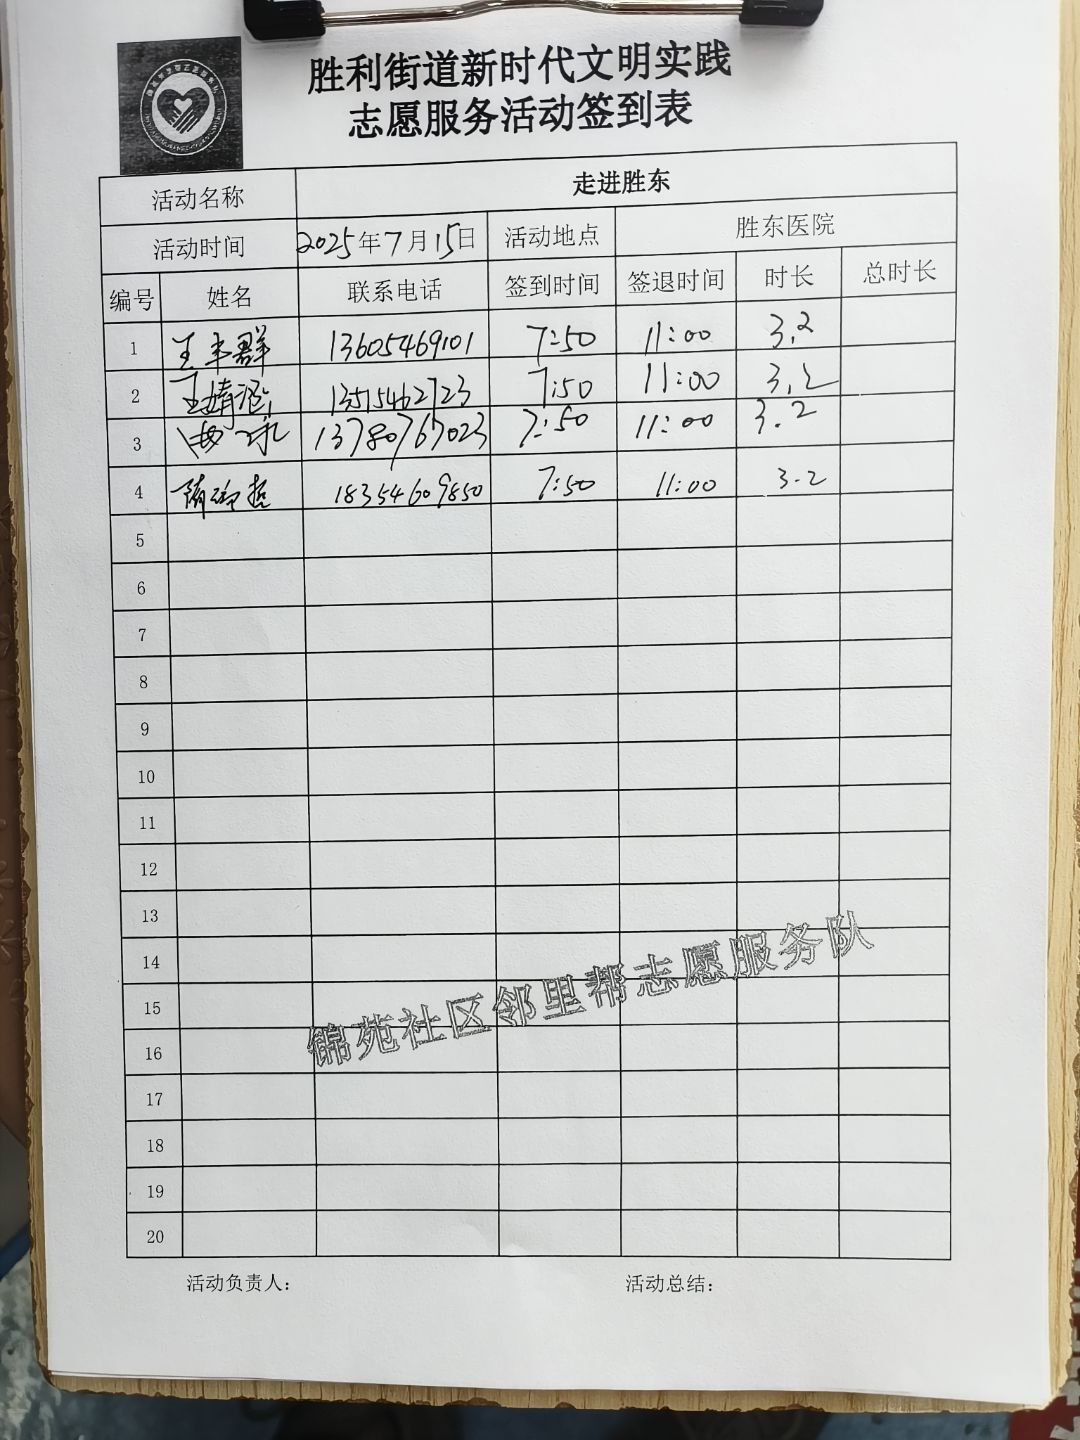 胜利街道新时代文明实践
志愿服务活动签到表
活动名称 走进胜东
活动时间 2025年7月15日 活动地点 胜东医院
编号 姓名 联系电话 签到时间 签退时间 时长 总时长
1 王丰群 13605469101 7:50 11:00 3.2
2 王婧涵 13515462723 7:50 11:00 3.2
3 13780767023 7:50 11:00 3.2
4 隋 哲 18354609850 7:50 11:00 3.2
5
6
7
8
9
10
11
12
13
14
15
16
17
18
19
20
锦苑社区邻里帮志愿服务队
活动负责人: 活动总结: